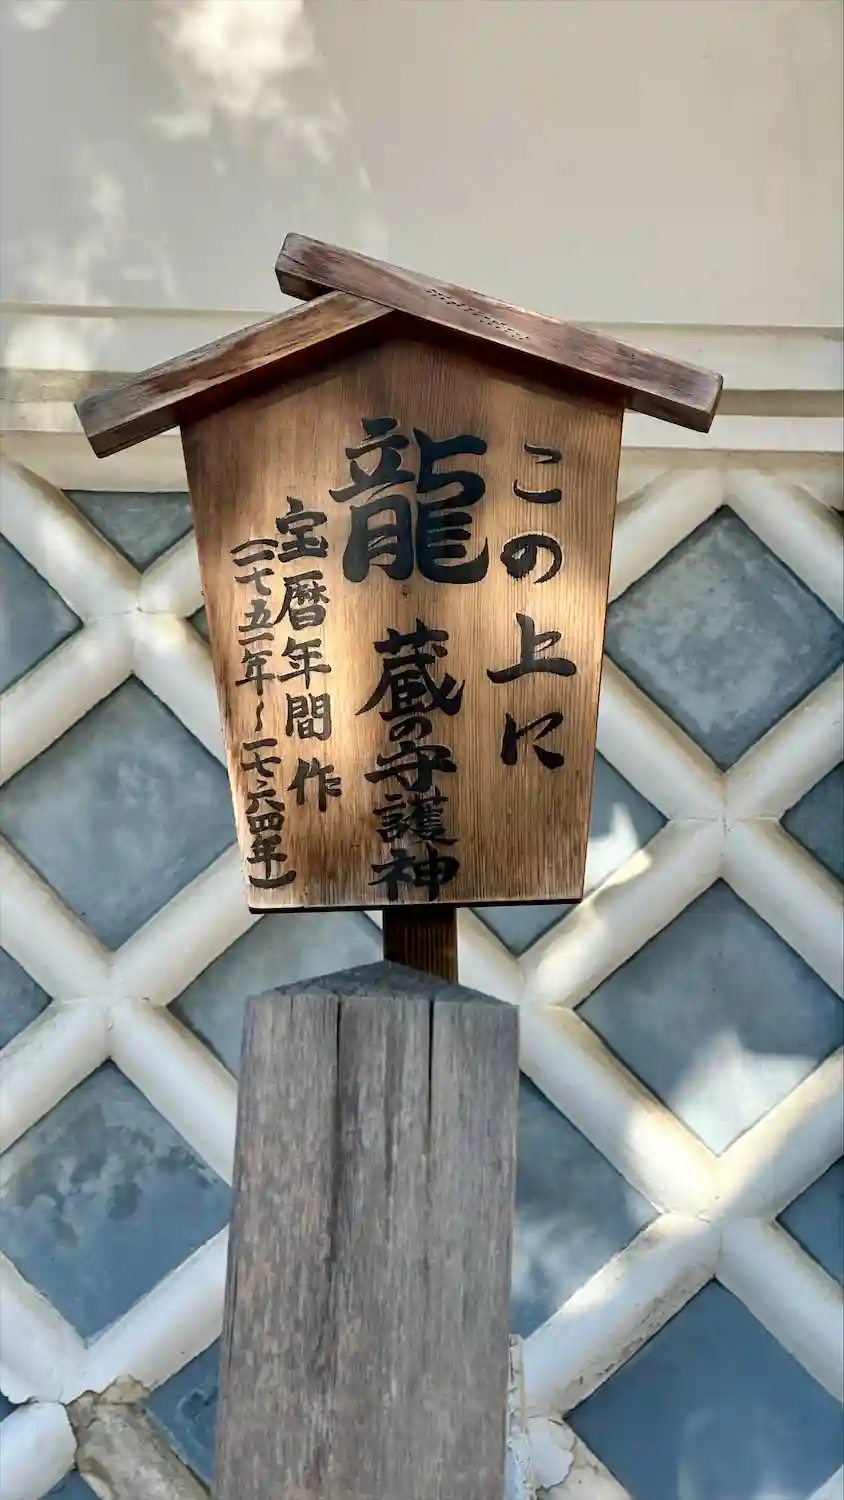 この上に
龍 蔵の守護神
宝暦年間作
(一七五一年～一七六四年)